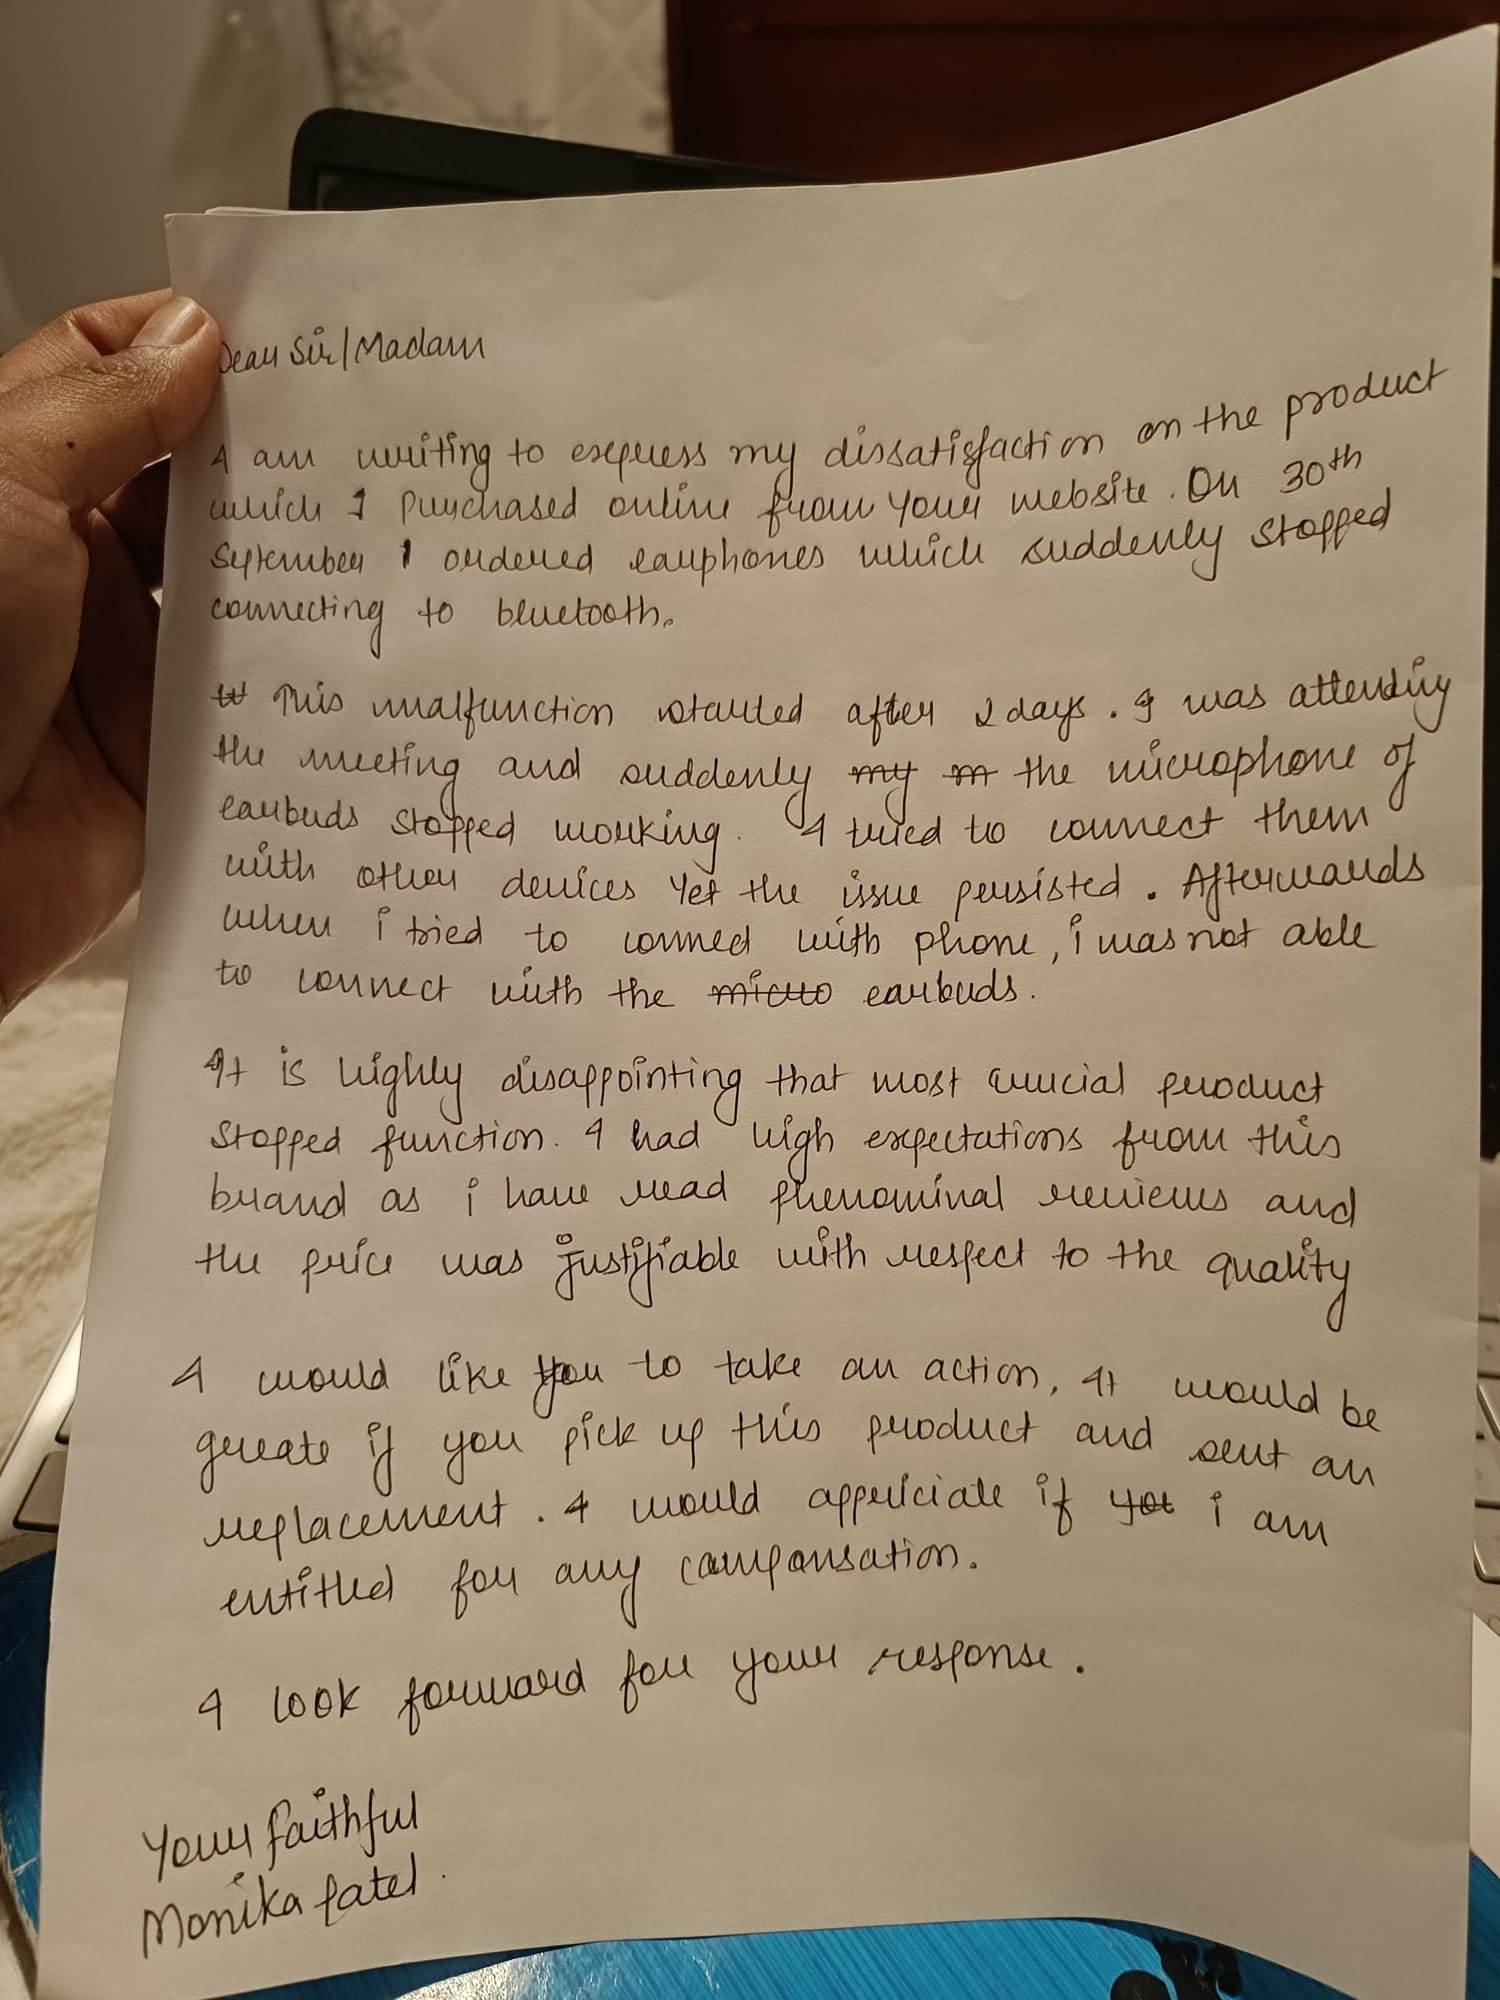 Dear Sir/Madam
I am writing to express my dissatisfaction on the product
which I purchased online from your website. On 30th
September I ordered earphones which suddenly stopped
connecting to bluetooth.
This malfunction started after 2 days. I was attending
the meeting and suddenly my m the microphone of
earbuds stopped working. I tried to connect them
with other devices yet the issue persisted. Afterwards
when i tried to conned with phone, i was not able
to connect with the micro earbuds.
It is highly disappointing that most crucial product
stopped function. I had high expectations from this
brand as i have read phenominal reviews and
the price was justifiable with respect to the quality
I would like you to take an action, It would be
greate if you pick up this product and sent an
replacement. I would appericiate if you i am
entitled for any compansation.
I look forward for your response.
Your faithful
Monika Patel.